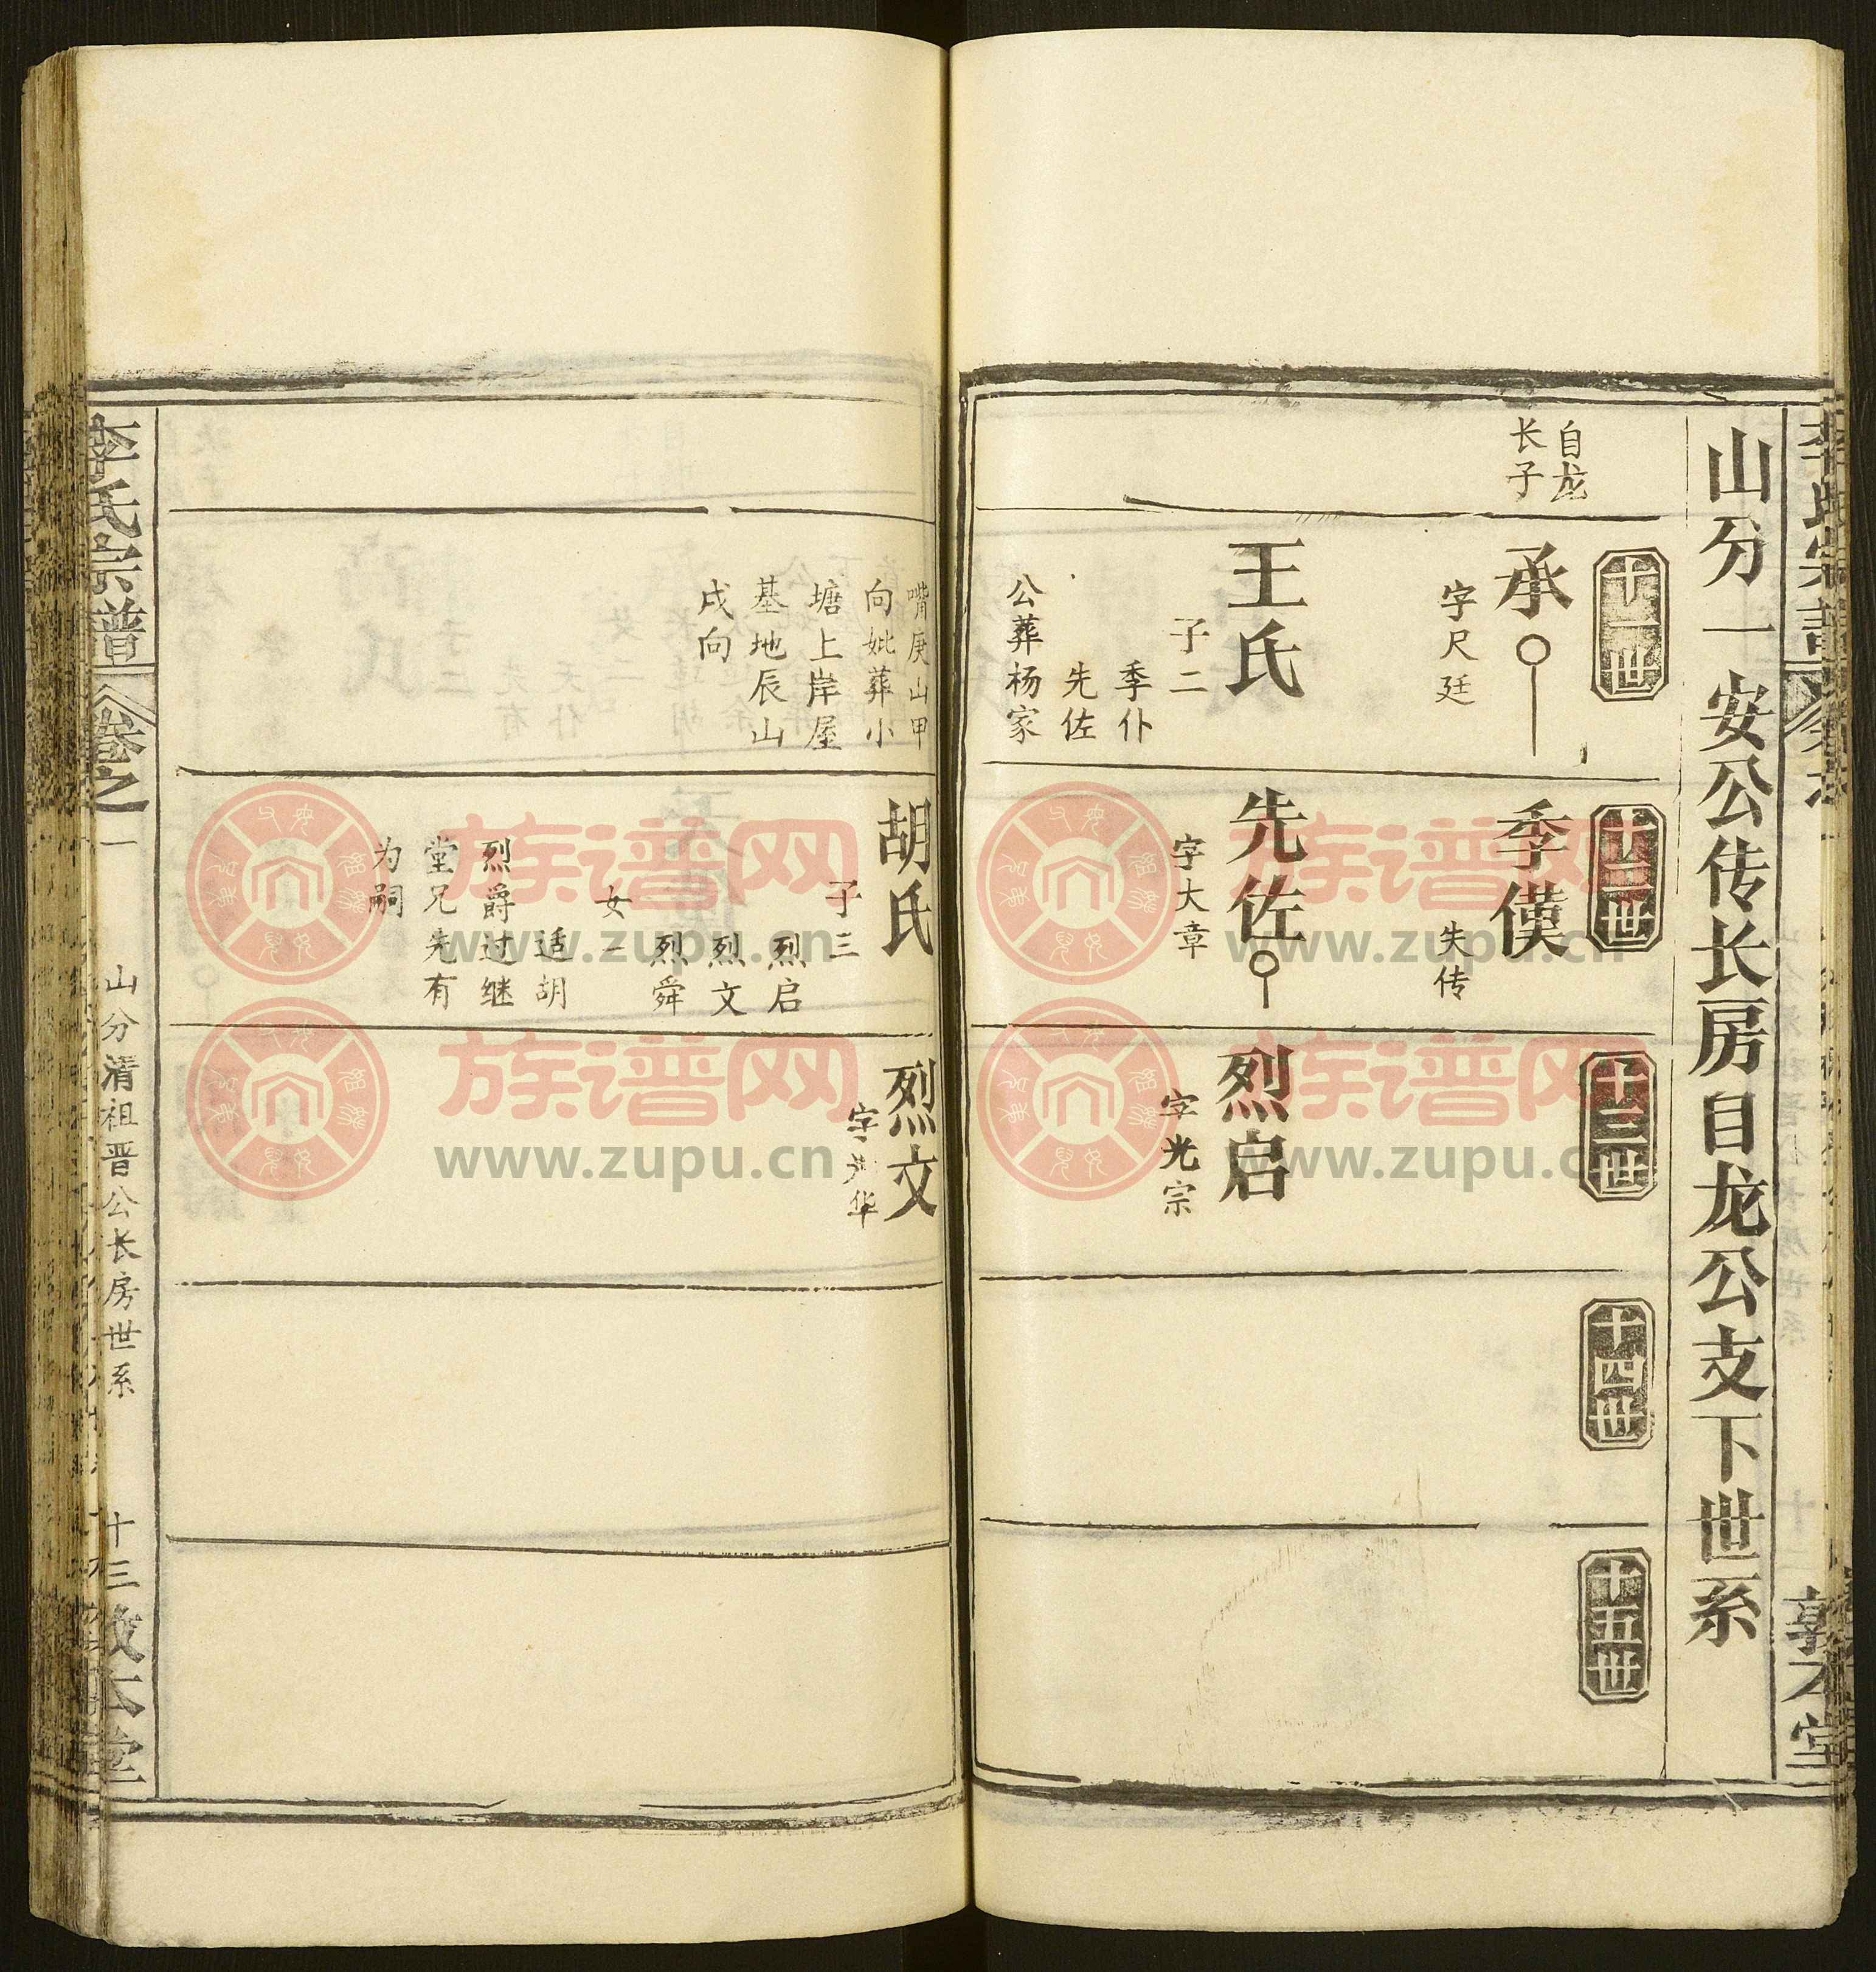 李氏宗谱
敦本堂
山分一 安公传长房自龙公支下世系
十一世
十二世
十三世
十四世
十五世
自龙
长子
承
字尺廷
王氏
子二
季仆
先佐
公葬杨家
季僕
失传
先佐
字大章
烈启
字光宗
嘴庚山甲
向妣葬小
塘上岸屋
基地辰山
戌向
胡氏
子三
烈启
烈文
烈舜
女一
适胡
烈爵过继
堂兄先有
为嗣
烈文
字
华
李氏宗谱
卷之一
山分清祖晋公长房世系
十三
敦本堂
族谱网
www.zupu.cn
族谱网
www.zupu.cn
族谱网
www.zupu.cn
族谱网
www.zupu.cn